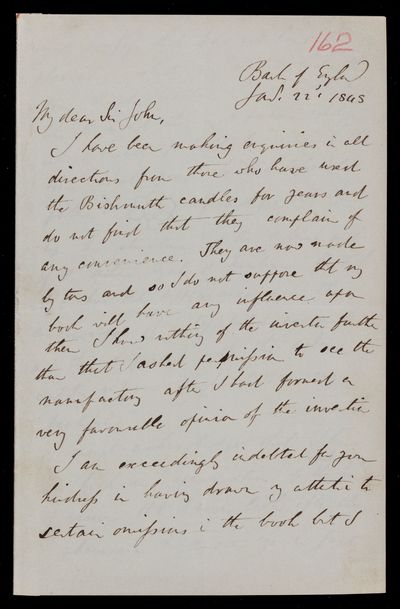 162
Bank of Engld
Jan. 22d 1848
My dear Sir John,
I have been making enquiries in all
directions from those who have used
the Bishmuth candles for years and
do not find that they complain of
any convenience. They are now made
by tons and so I do not suppose that my
book will have any influence upon
them I know nothing of the inventor further
than that I asked permission to see the
manufactory after I had formed a
very favourable opinion of the invention
I am exceedingly indebted for your
kindness in having drawn my attention to
certain omissions in the book but I